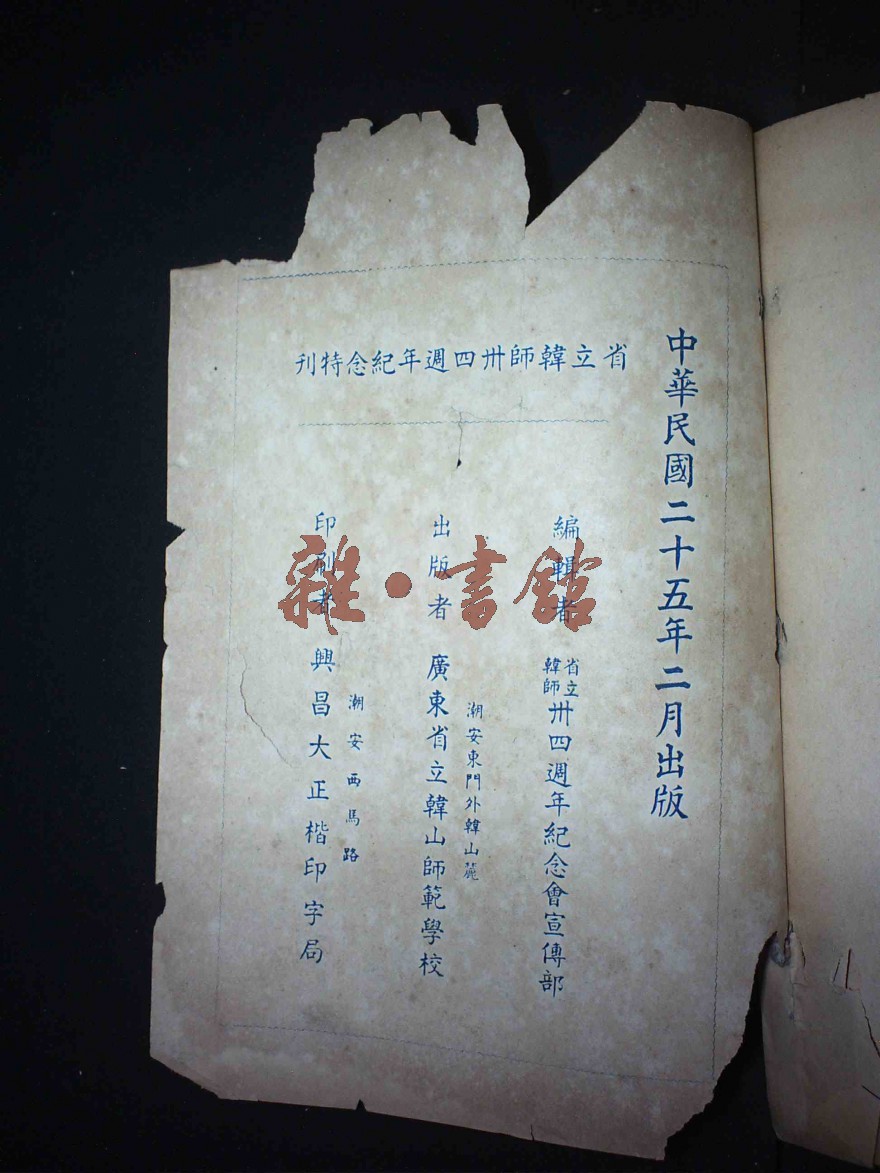 中華民國二十五年二月出版
省立韓師卅四週年紀念特刊
編輯者 省立韓師卅四週年紀念會宣傳部
出版者 廣東省立韓山師範學校
潮安東門外韓山麓
印刷者 興昌大正楷印字局
潮安西馬路
雜·書館